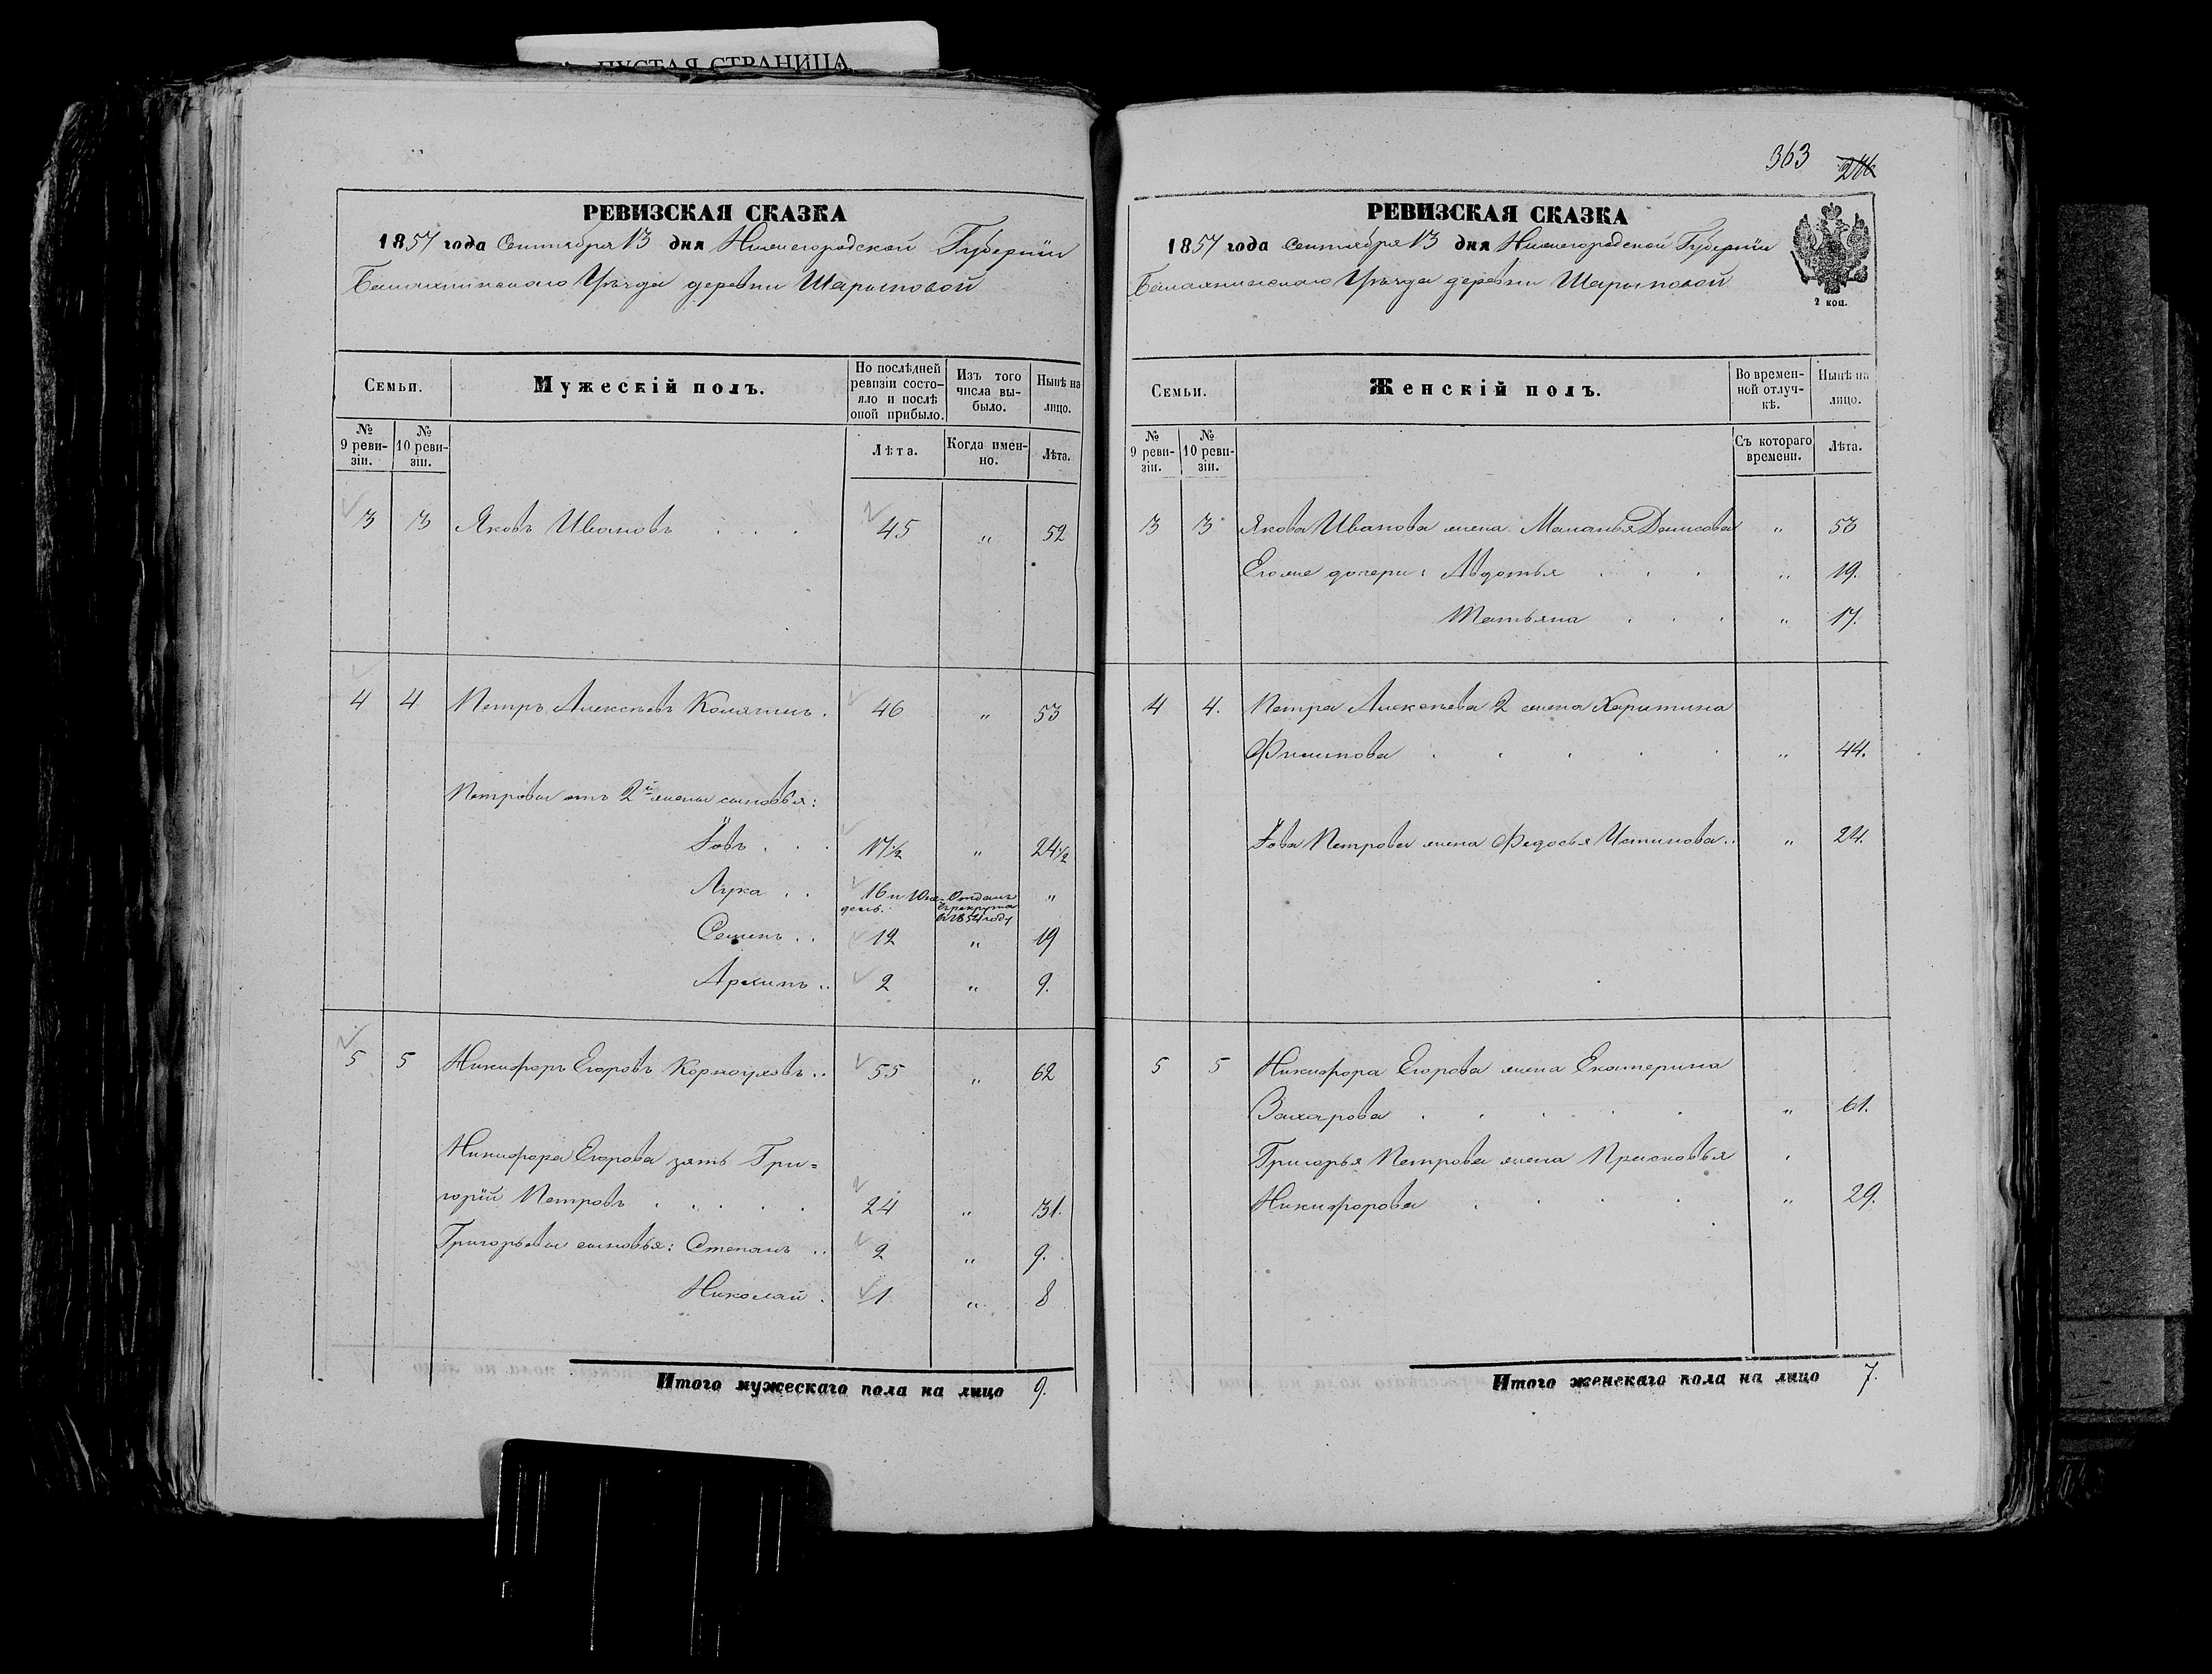 ПУСТАЯ СТРАНИЦА
РЕВИЗСКАЯ СКАЗКА
1857 года Сентября 13 дня Нижегородской Губерніи
Балахнинскаго Уѣзда деревни Шарыповой
Семьи.
Мужескій полъ.
По послѣдней ревизіи состояло и послѣ оной прибыло.
Изъ того числа выбыло.
Нынѣ на лицо.
№ 9 ревизіи.
№ 10 ревизіи.
Лѣта.
Когда именно.
Лѣта.
3 3 Яковъ Ивановъ . . . 45 „ 52
4 4 Петръ Алексѣевъ . 46 „ 53
Петровы отъ 2й жены сыновья:
Іовъ . . . 17½ „ 24½
Лука . . 16 и Отданъ „
въ рекруты
въ 1854 году
Семенъ . . 12 „ 19
Архипъ . . 2 „ 9.
5 5 Никифоръ Егоровъ Корноуховъ . . 55 „ 62
Никифора Егорова зять Гри=
горій Петровъ . . . . . 24 „ 31.
Григорьевы сыновья: Степанъ . . 2 „ 9.
Николай . 1 „ 8
Итого мужескаго пола на лицо 9.
363
РЕВИЗСКАЯ СКАЗКА
1857 года Сентября 13 дня Нижегородской Губерніи
Балахнинскаго Уѣзда деревни Шарыповой
2 коп.
Семьи.
Женскій полъ.
Во временной отлучкѣ.
Нынѣ на лицо.
№ 9 ревизіи.
№ 10 ревизіи.
Съ котораго времени.
Лѣта.
3 3 Якова Иванова жена Маланья Денисова „ 53
Его же дочери: Авдотья . . . „ 19.
Татьяна . . . „ 17.
4 4. Петра Алексѣева 2 жена Харитина
Филипова . . . . . „ 44.
Іова Петрова жена Федосья Устинова . . „ 24.
5 5 Никифора Егорова жена Екатерина
Захарова . . . . . „ 61.
Григорья Петрова жена Прасковья
Никифорова . . . . „ 29.
Итого женскаго пола на лицо 7.